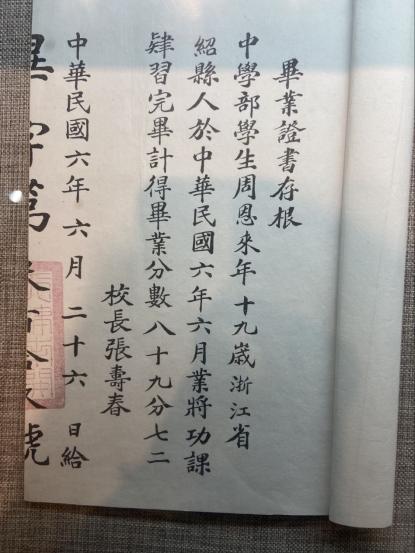 畢業證書存根
中學部學生周恩來年十九歲浙江省
紹縣人於中華民國六年六月業將功課
肄習完畢計得畢業分數八十九分七二
校長張壽春
中華民國六年六月二十六日給
畢字第 號